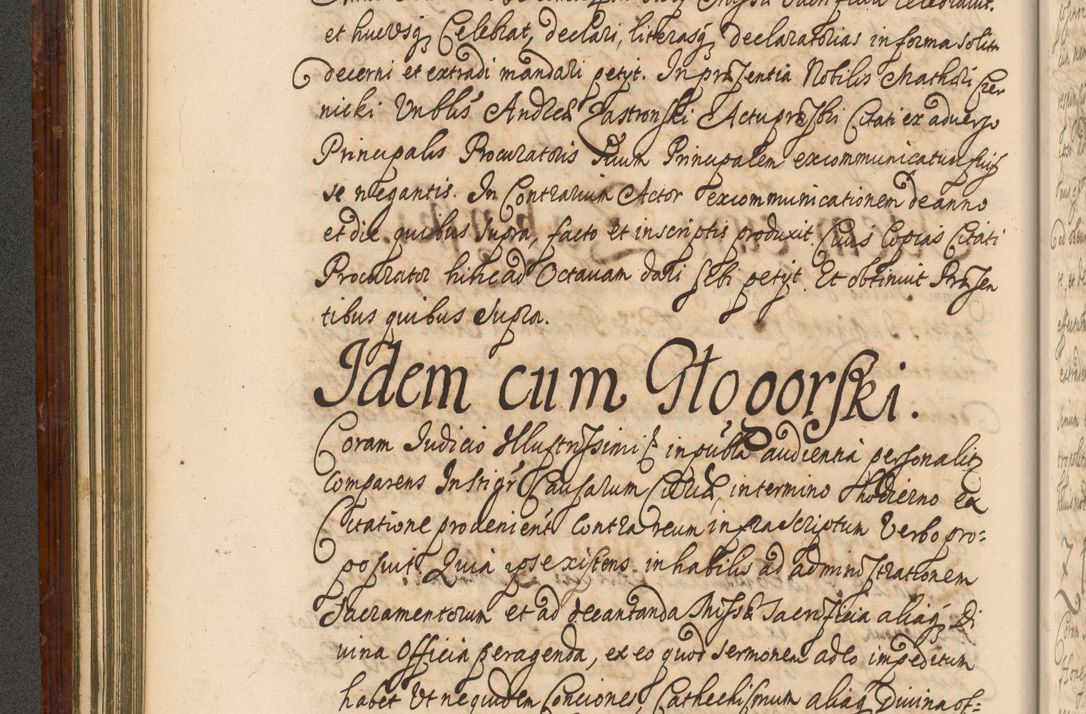 et hucusq; Celebrat, declari, literasq; declaratorias in forma solita
decerni et extradi mandari petijt. In præsentia Nobilis Mathæi Czer
nicki Vnblis Andreæ Zastronski Actu præsbri Citati ex adverso
Principalis Procuratoris suum Principalem excommunicatum fuis
se negantis. In Contrarium Actor excommunicationem de anno
et die quibus supra, facto et in scriptis produxit. Cuius Copias Citati
Procurator hinc ad Octavam dari sibi petijt. Et obtinuit Præsen
tibus quibus supra.
Idem cum Głogorski.
Coram Judicio Illustrissimi in publa audientia personalis
Comparens Instigr Causarum Curiæ, in termino Hodierno ex
Citatione proveniente contra reum infrascriptum Verbo pro:
posuit Quia ipse existens inhabilis ad administrationem
Sacramentorum et ad decantanda Missæ Sacrificia aliaq; Di
vina Officia peragenda, ex eo quod sermonem adeo impeditum
habet Vt nequidem Conciones, Cathechismum aliaq; Divina of=